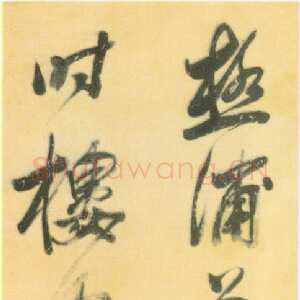 極浦
时樓
Shufawang.CN